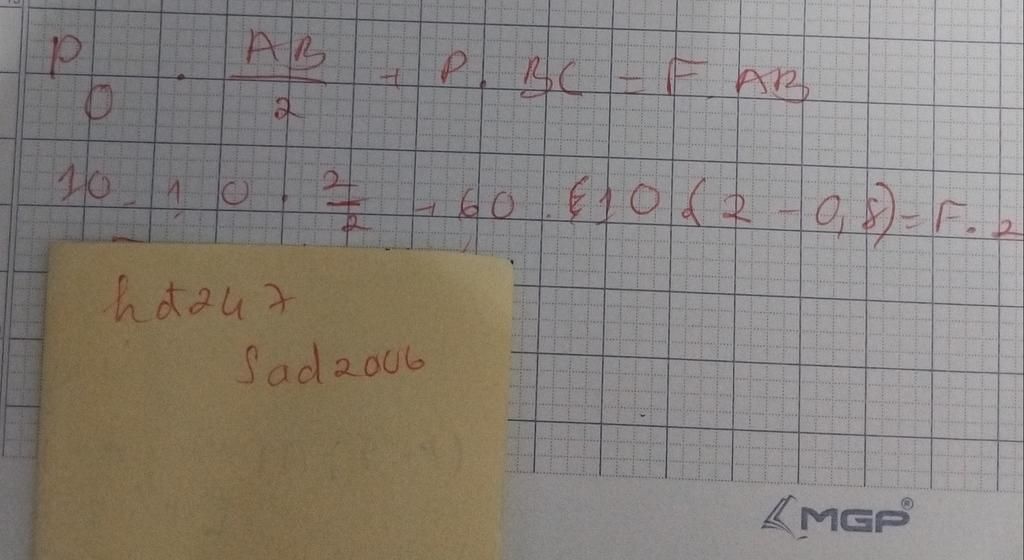 P0 . AB/2 + P. BC = F. AB
10. 10 . 2/2 + 60 . 10 ( 2 - 0,8) = F. 2
hd247
Sad2006
MGP®